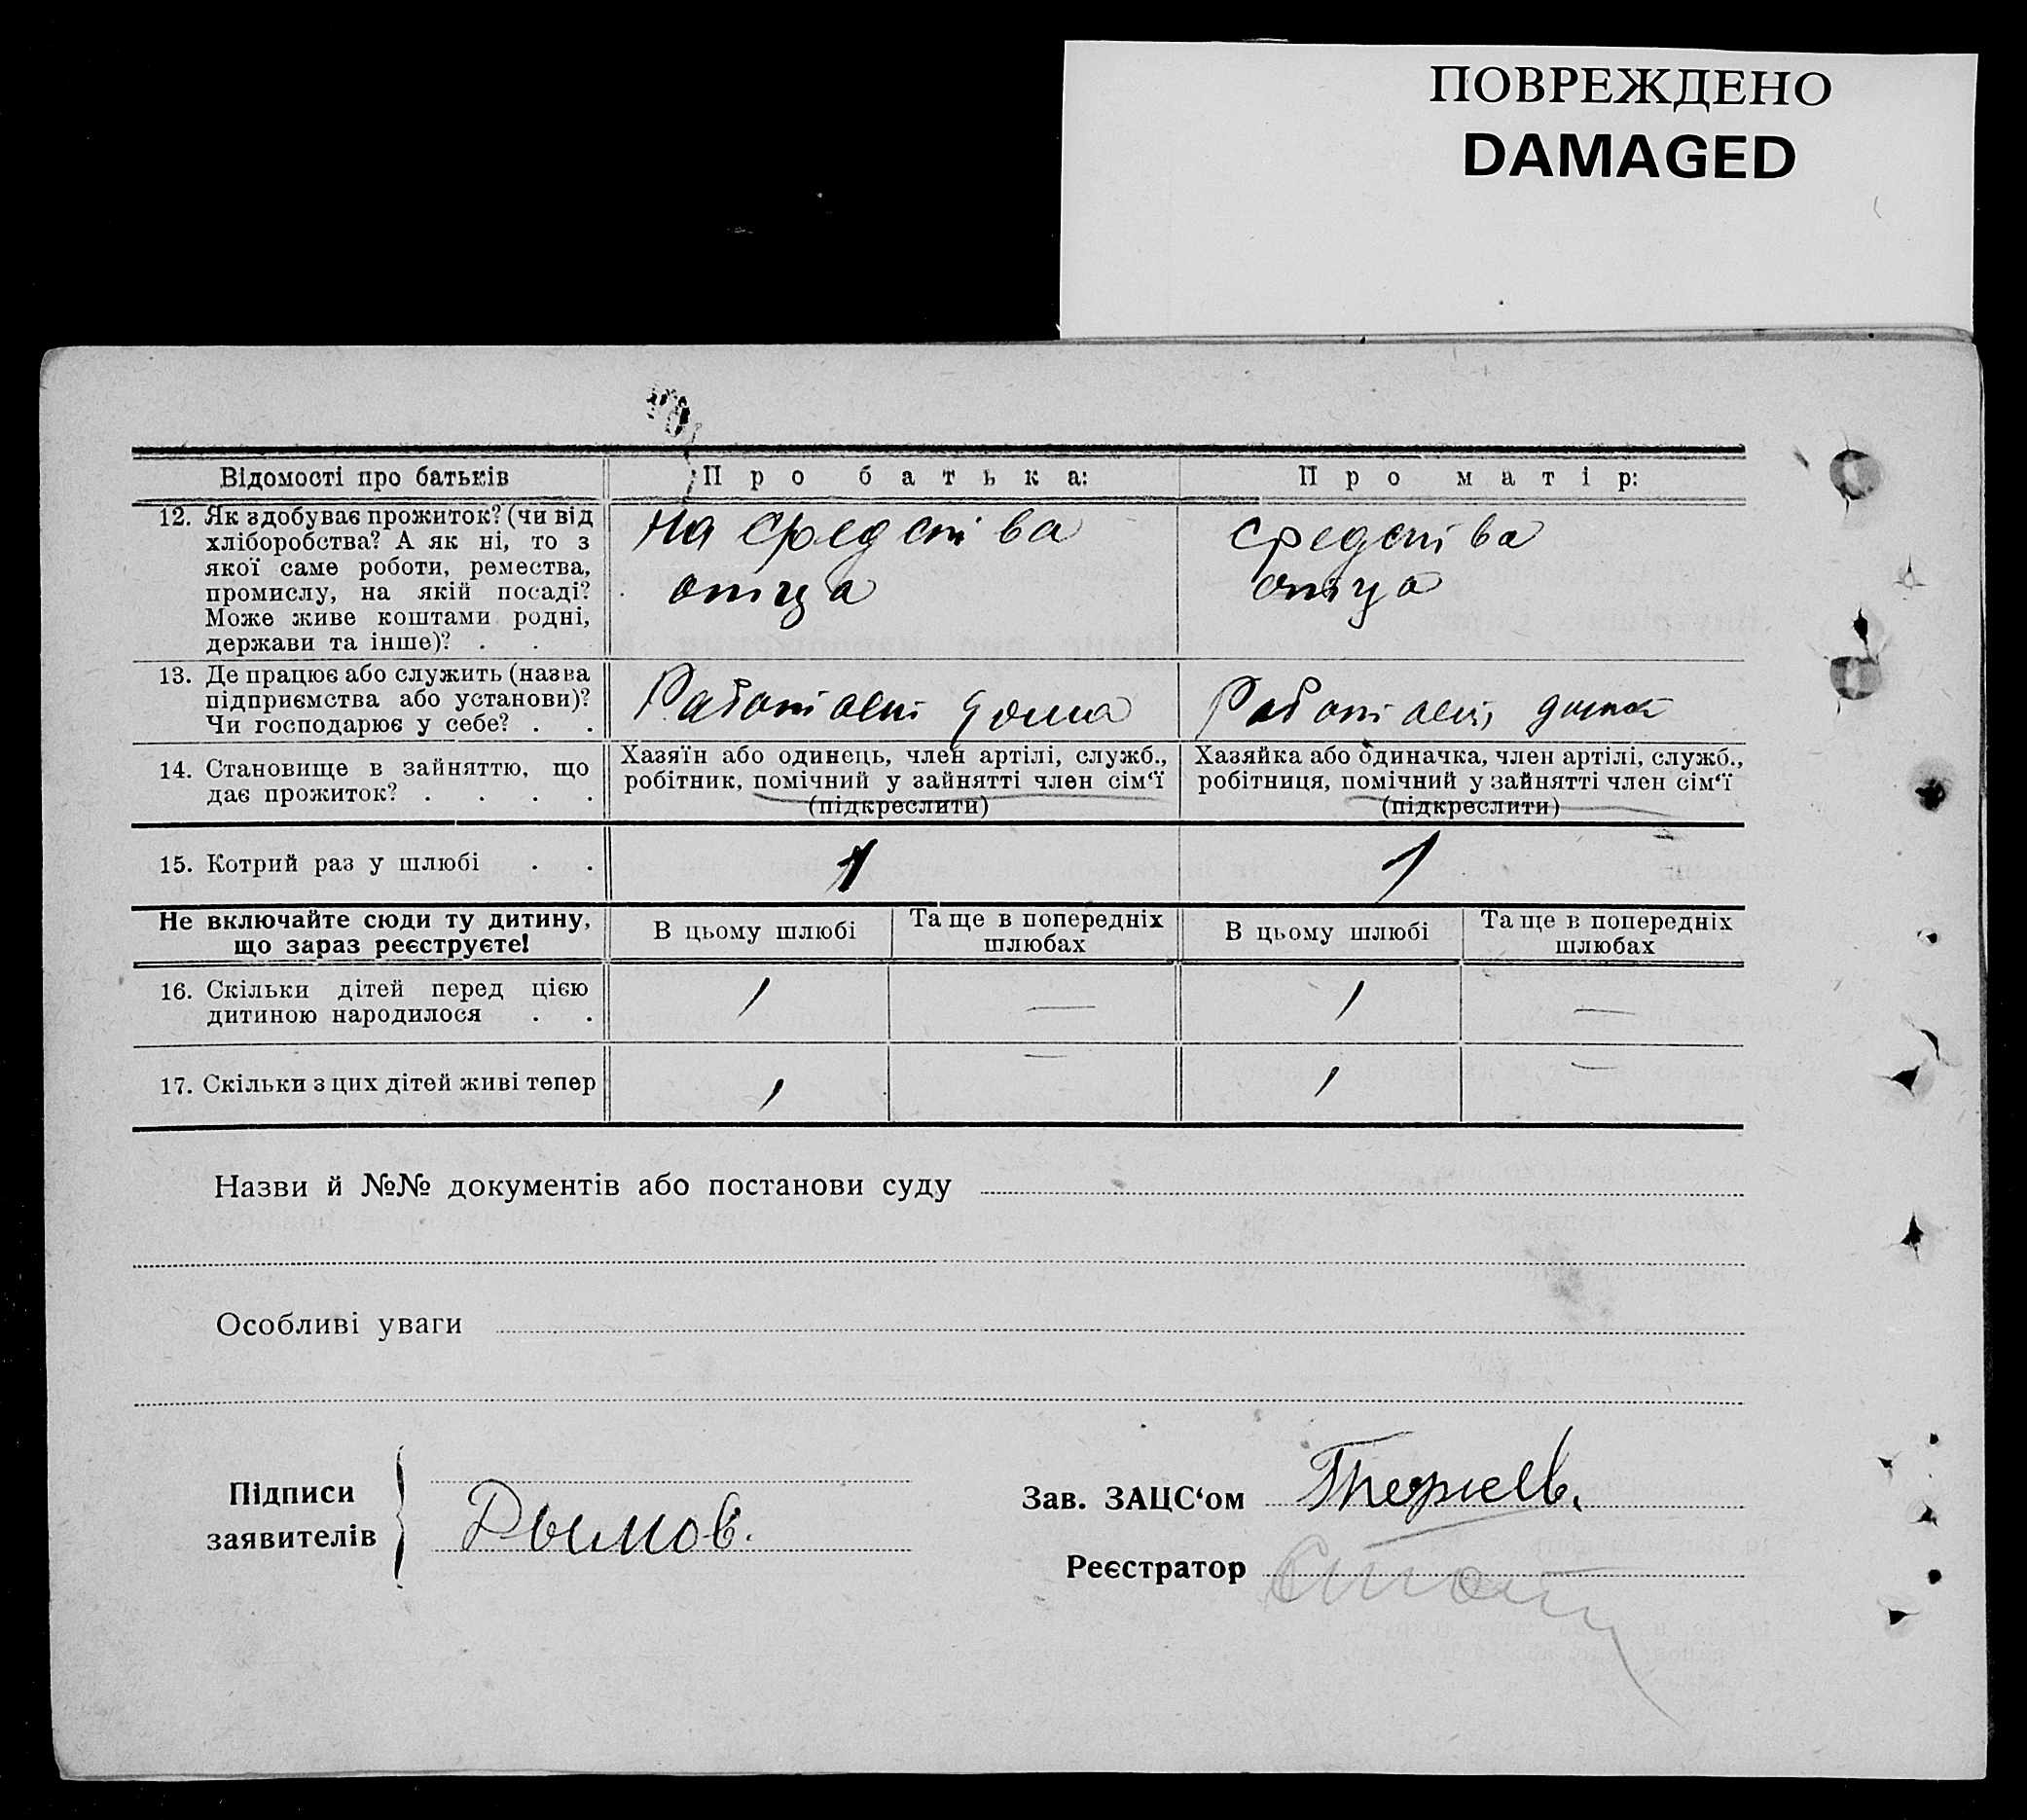 ПОВРЕЖДЕНО
DAMAGED
Відомості про батьків
Про батька:
Про матір:
12. Як здобуває прожиток? (чи від
хліборобства? А як ні, то з
якої саме роботи, ремества,
промислу, на якій посаді?
Може живе коштами родні,
держави та інше)? . .
на средства
отца
средства
отца
13. Де працює або служить (назва
підприємства або установи)?
Чи господарює у себе? . .
Работает дома
Работает дома
14. Становище в зайняттю, що
дає прожиток? . . . .
Хазяїн або одинець, член артілі, служб.,
робітник, помічний у зайнятті член сім‘ї
(підкреслити)
Хазяйка або одиначка, член артілі, служб.,
робітниця, помічний у зайнятті член сім‘ї
(підкреслити)
15. Котрий раз у шлюбі . .
1
1
Не включайте сюди ту дитину,
що зараз реєструєте!
В цьому шлюбі
Та ще в попередніх
шлюбах
В цьому шлюбі
Та ще в попередніх
шлюбах
16. Скільки дітей перед цією
дитиною народилося . .
1
—
1
—
17. Скільки з цих дітей живі тепер
1
—
1
—
Назви й №№ документів або постанови суду
Особливі уваги
Підписи
заявителів
Дымов.
Зав. ЗАЦС‘ом
Реєстратор